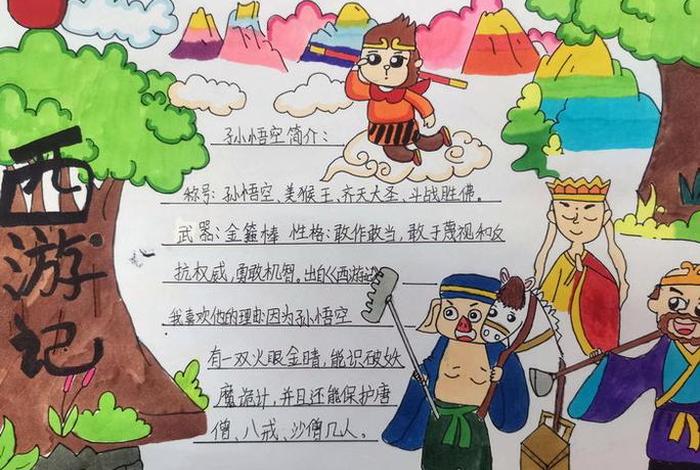 西游记
孙悟空简介：
称号：孙悟空、美猴王、齐天大圣、斗战胜佛。
武器：金箍棒 性格：敢作敢当，敢于蔑视和反
抗权威，勇敢机智。出自《西游记》
我喜欢他的理由：因为孙悟空
有一双火眼金睛，能识破妖
魔诡计，并且还能保护唐
僧、八戒、沙僧几人。